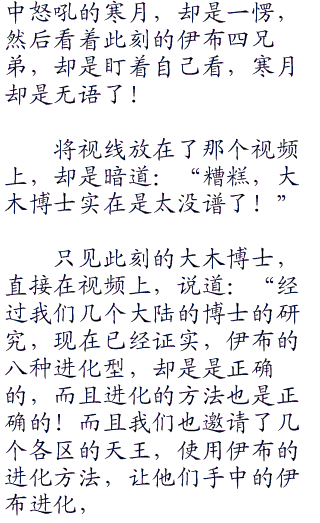 中怒吼的寒月，却是一愣，
然后看着此刻的伊布四兄
弟，却是盯着自己看，寒月
却是无语了！
将视线放在了那个视频
上，却是暗道：“糟糕，大
木博士实在是太没谱了！”
只见此刻的大木博士，
直接在视频上，说道：“经
过我们几个大陆的博士的研
究，现在已经证实，伊布的
八种进化型，却是是正确
的，而且进化的方法也是正
确的！而且我们也邀请了几
个各区的天王，使用伊布的
进化方法，让他们手中的伊
布进化，